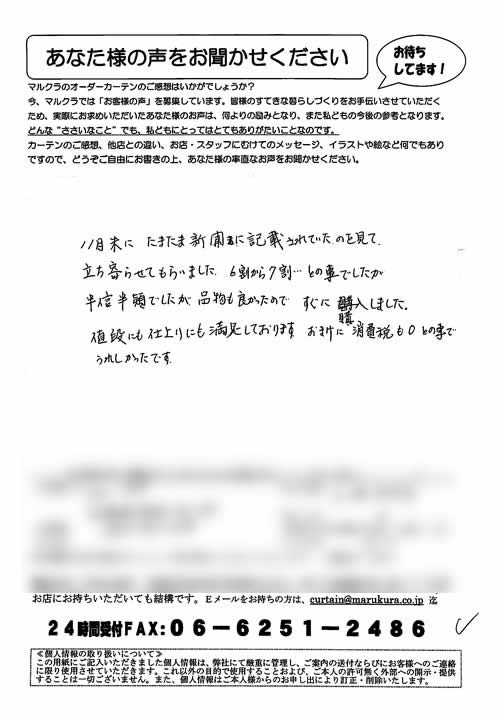 あなた様の声をお聞かせください
お待ち
してます!
マルクラのオーダーカーテンのご感想はいかがでしょうか?
今、マルクラでは「お客様の声」を募集しています。皆様のすてきな暮らしづくりをお手伝いさせていただく
ため、実際にお求めいただいたあなた様のお声は、何よりの励みとなり、また私どもの今後の参考となります。
どんな“ささいなこと”でも、私どもにとってはとてもありがたいことなのです。
カーテンのご感想、他店との違い、お店・スタッフにむけてのメッセージ、イラストや絵など何でもあり
ですので、どうぞご自由にお書きの上、あなた様の率直なお声をお聞かせください。
11月末に たまたま新聞に記載されていたのを見て、
立ち寄らせてもらいました。6割から7割…との事でしたが
半信半額でしたが 品物も良かったので すぐに購入しました。
値段にも仕上りにも満足しております おまけに消費税も0との事で
うれしかったです。
お店にお持ちいただいても結構です。Eメールをお持ちの方は、curtain@marukura.co.jp 迄
24時間受付FAX:06-6251-2486
≪個人情報の取り扱いについて≫
この用紙にご記入いただきました個人情報は、弊社にて厳重に管理し、ご案内の送付ならびにお客様へのご連絡
に限り使用させていただきます。これ以外の目的で使用することおよび、ご本人の許可無く外部への開示・提供
することは一切ございません。また、個人情報はご本人様からのお申し出により訂正・削除いたします。